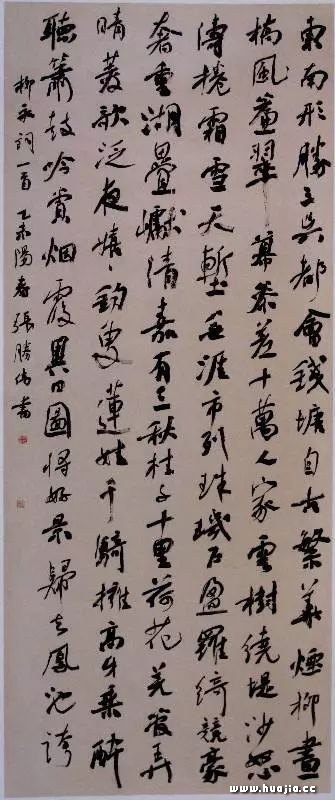 東南形勝三吳都會錢塘自古繁華煙柳畫
橋風簾翠幕參差十萬人家雲樹繞堤沙怒
濤捲霜雪天塹無涯市列珠璣戶盈羅綺競豪
奢重湖疊巘清嘉有三秋桂子十里荷花羌管弄
晴菱歌泛夜嬉嬉釣叟蓮娃千騎擁高牙乘醉
聽簫鼓吟賞烟霞異日圖將好景歸去鳳池誇
柳永詞一首 乙未陽春張勝偉書
www.huajia.cc